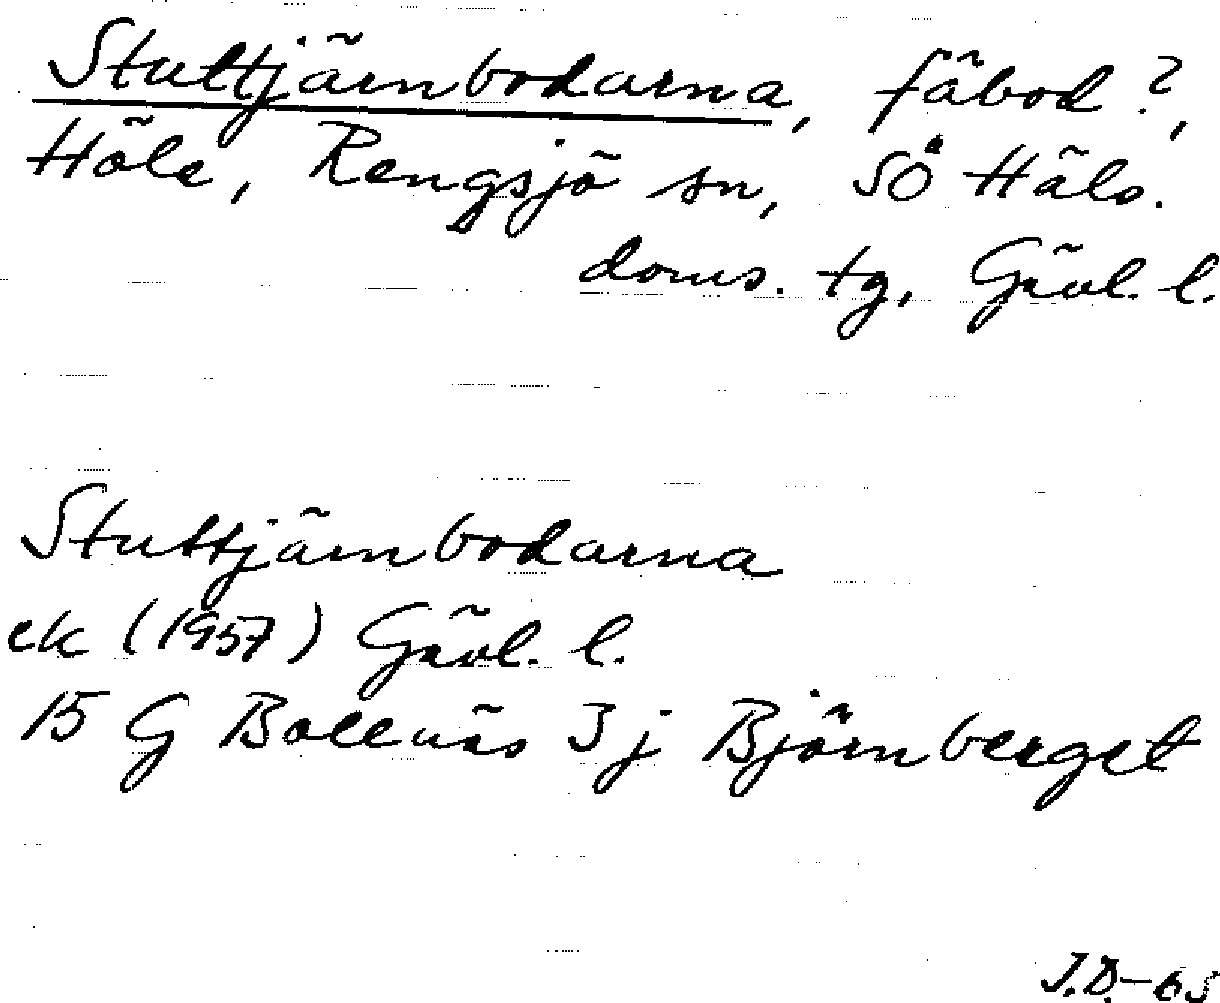 Stuttjärnbodarna, fäbod?,
Höle, Rengsjö sn, SÖ Häls.
doms. tg, Gävl. l.
Stuttjärnbodarna
ek (1957) Gävl. l.
15 G Bollnäs 3 j Björnberget
J.D.-65